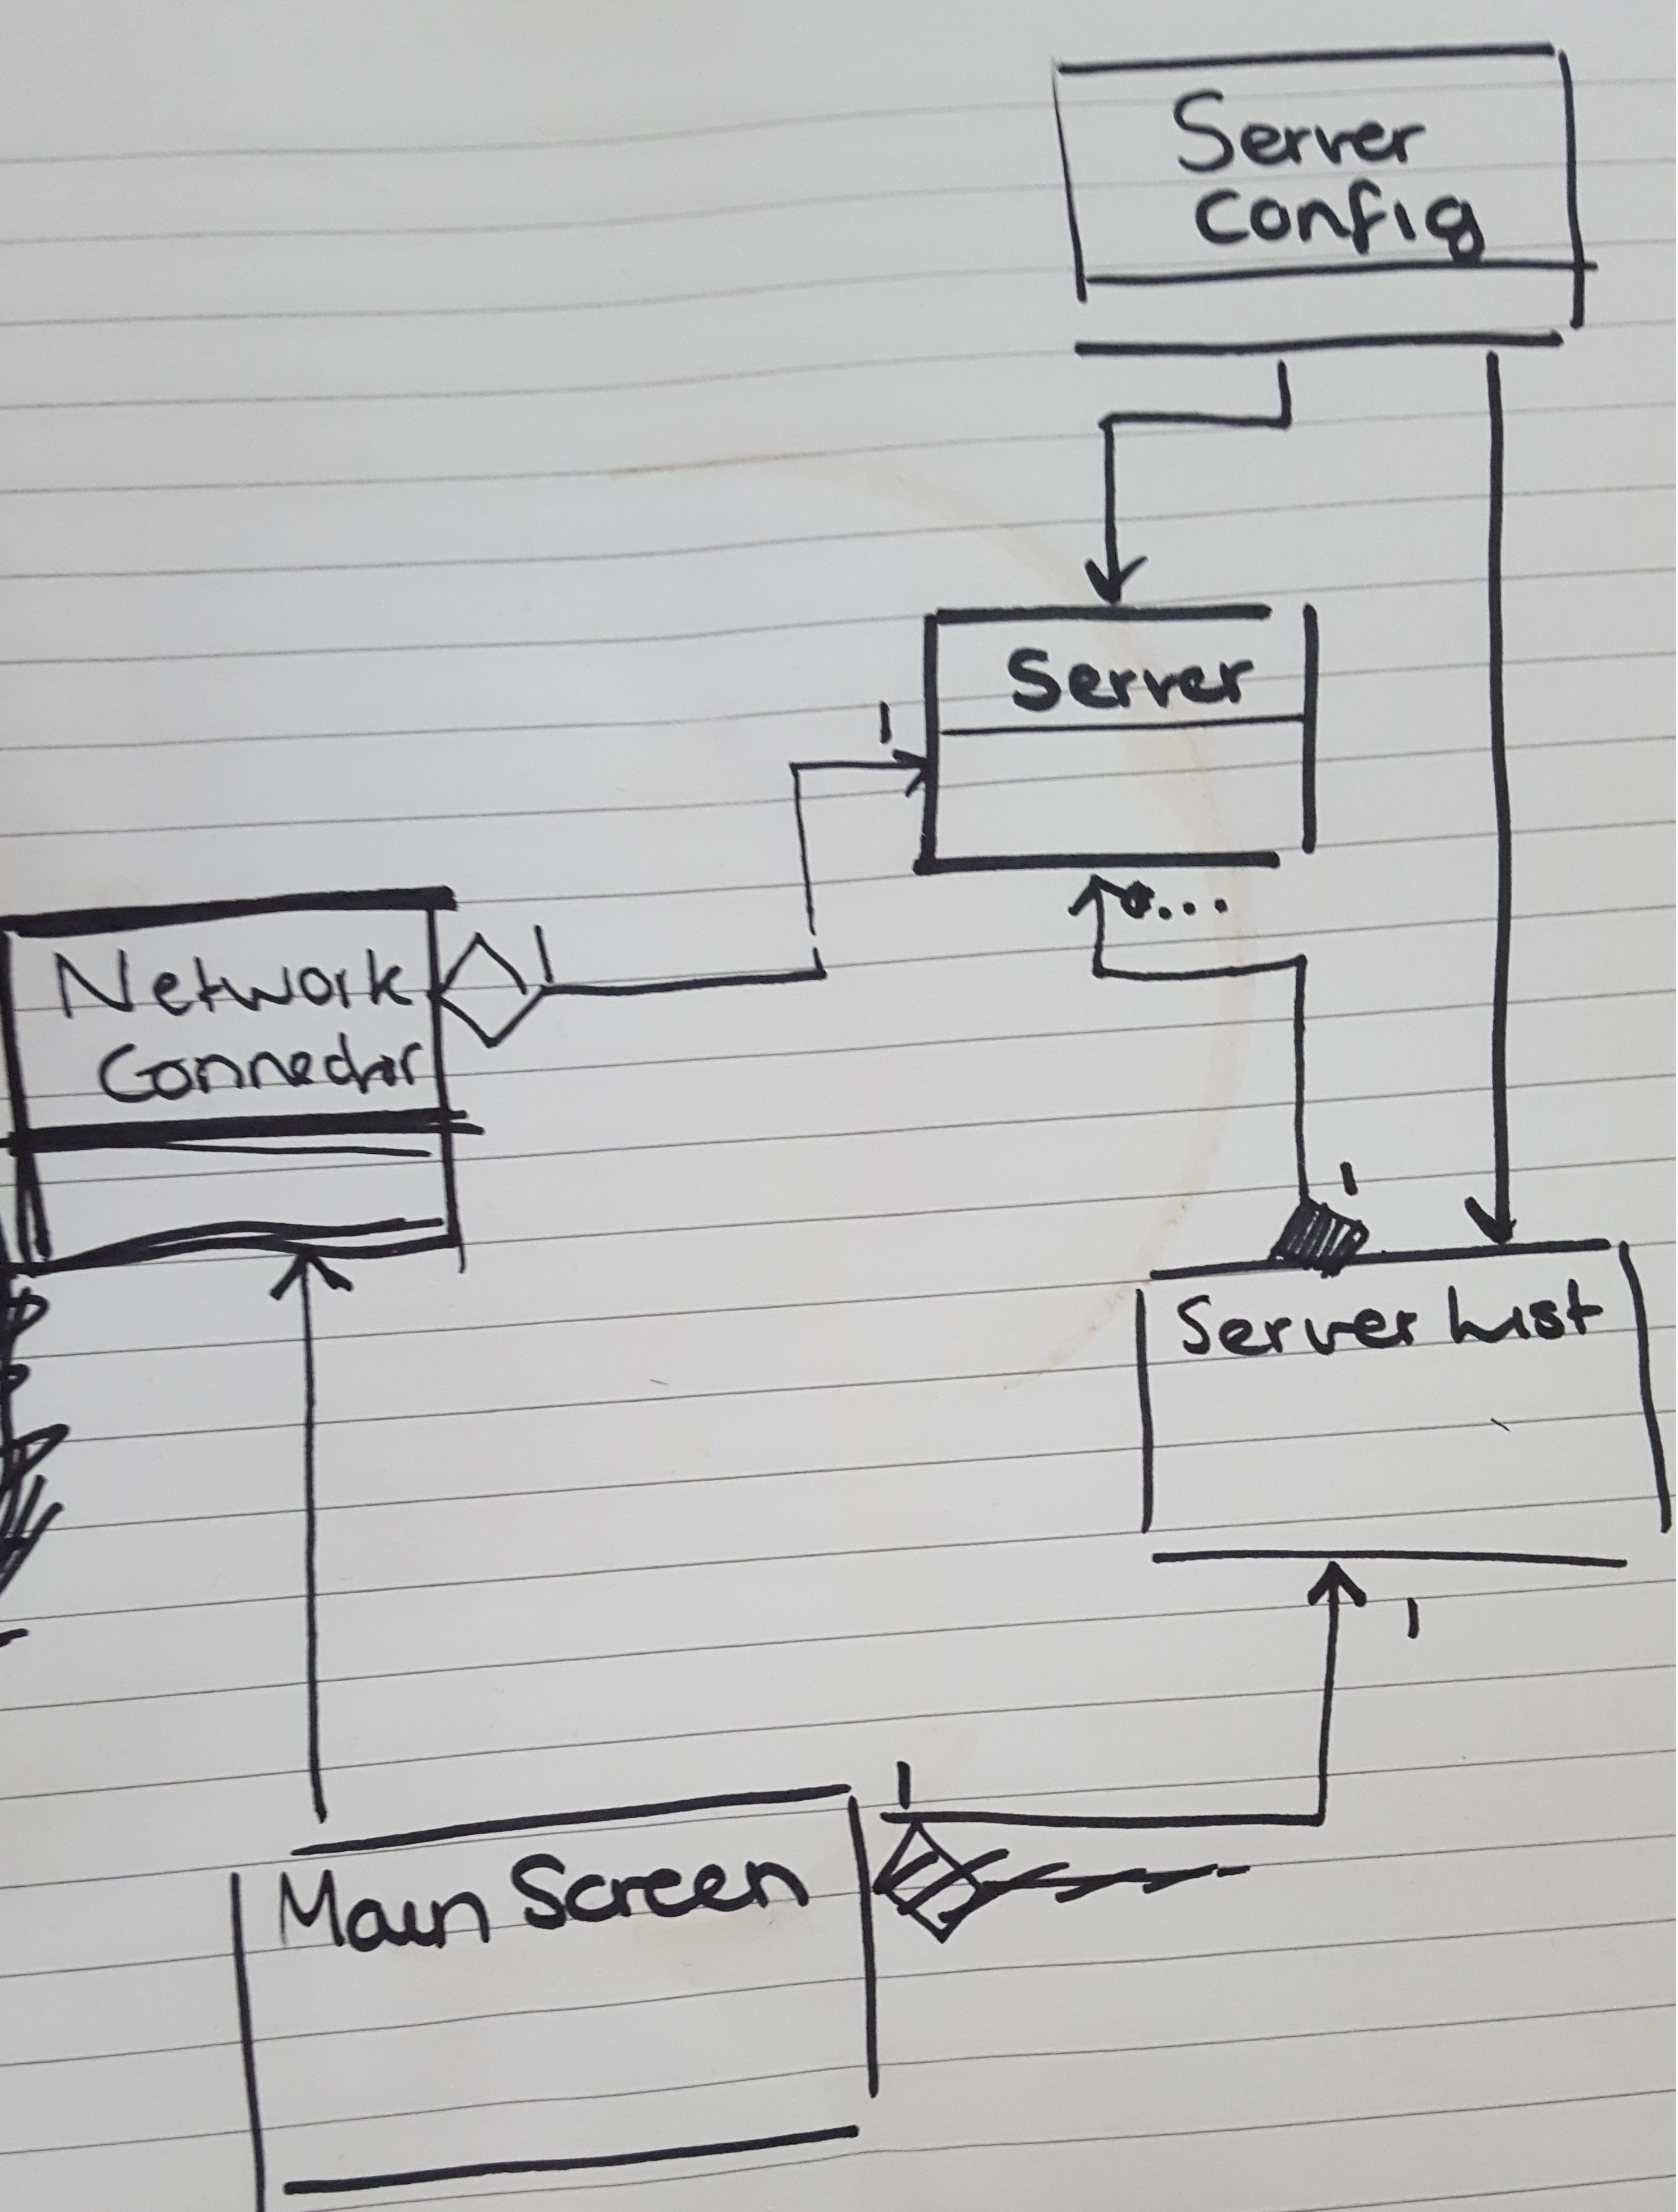 Server
Config
Server
1
0...
Network
1
Connector
1
Server List
1
1
Main Screen